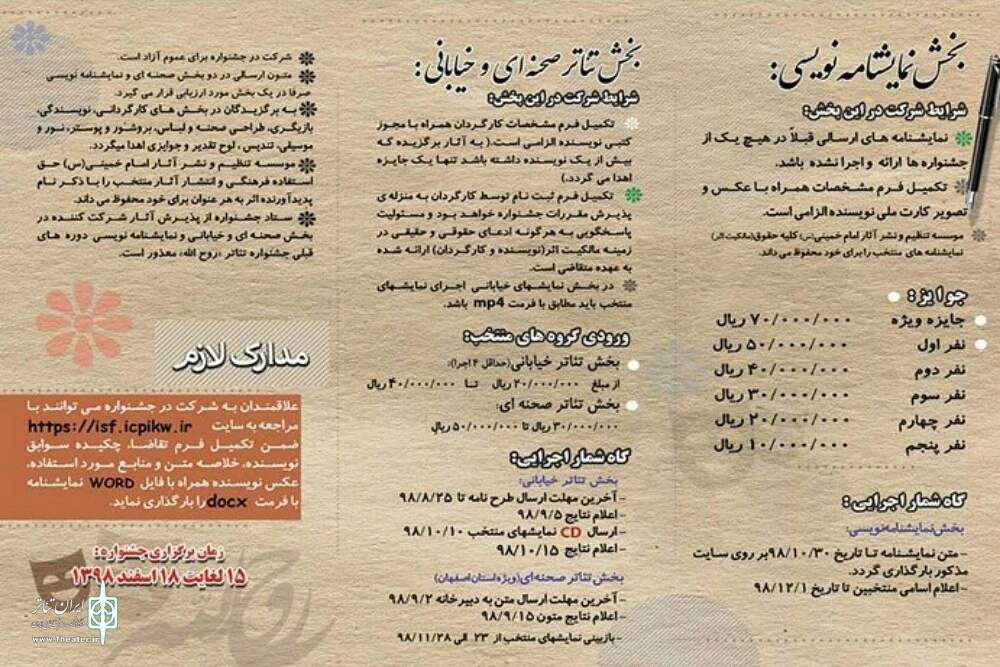 بخش نمایشنامه نویسی:
شرایط شرکت در این بخش:
نمایشنامه های ارسالی قبلاً در هیچ یک از
جشنواره ها ارائه و اجرا نشده باشد.
تکمیل فرم مشخصات همراه با عکس و
تصویر کارت ملی نویسنده الزامی است.
موسسه تنظیم و نشر آثار امام خمینی(س) کلیه حقوق(مالکیت اثر)
نمایشنامه های منتخب را برای خود محفوظ می داند.
جوایز:
جایزه ویژه ۷۰/۰۰۰/۰۰۰ ریال
نفر اول ۵۰/۰۰۰/۰۰۰ ریال
نفر دوم ۴۰/۰۰۰/۰۰۰ ریال
نفر سوم ۳۰/۰۰۰/۰۰۰ ریال
نفر چهارم ۲۰/۰۰۰/۰۰۰ ریال
نفر پنجم ۱۰/۰۰۰/۰۰۰ ریال
گاه شمار اجرایی:
بخش نمایشنامه نویسی:
- متن نمایشنامه تا تاریخ ۹۸/۱۰/۳۰ بر روی سایت
مذکور بارگذاری گردد.
- اعلام اسامی منتخبین تا تاریخ ۹۸/۱۲/۱
بخش تئاتر صحنه ای و خیابانی:
شرایط شرکت در این بخش:
تکمیل فرم مشخصات کارگردان همراه با مجوز
کتبی نویسنده الزامی است.( به آثار برگزیده که
بیش از یک نویسنده داشته باشد تنها یک جایزه
اهدا می گردد.)
تکمیل فرم ثبت نام توسط کارگردان به منزله ی
پذیرش مقررات جشنواره خواهد بود و مسئولیت
پاسخگویی به هرگونه ادعای حقوقی و حقیقی در
زمینه مالکیت اثر(نویسنده و کارگردان) ارائه شده
به عهده متقاضی است.
در بخش نمایشهای خیابانی اجرای نمایشهای
منتخب باید مطابق با فرمت mp4 باشد.
ورودی گروه های منتخب:
بخش تئاتر خیابانی(حداقل ۴ اجرا):
از مبلغ ۲۰/۰۰۰/۰۰۰ ریال تا ۴۰/۰۰۰/۰۰۰ ریال
بخش تئاتر صحنه ای:
۳۰/۰۰۰/۰۰۰ ریال تا ۵۰/۰۰۰/۰۰۰ ریال
گاه شمار اجرایی:
بخش تئاتر خیابانی:
- آخرین مهلت ارسال طرح نامه تا ۹۸/۸/۲۵
- اعلام نتایج ۹۸/۹/۵
- ارسال CD نمایشهای منتخب ۹۸/۱۰/۱۰
- اعلام نتایج ۹۸/۱۰/۱۵
بخش تئاتر صحنه ای(ویژه استان اصفهان)
- آخرین مهلت ارسال متن به دبیرخانه ۹۸/۹/۲
- اعلام نتایج متون ۹۸/۹/۱۵
- بازبینی نمایشهای منتخب از ۲۳ الی ۹۸/۱۱/۲۸
شرکت در جشنواره برای عموم آزاد است.
متون ارسالی در دو بخش صحنه ای و نمایشنامه نویسی
صرفا در یک بخش مورد ارزیابی قرار می گیرد.
به برگزیدگان در بخش های کارگردانی، نویسندگی،
بازیگری، طراحی صحنه و لباس، بروشور و پوستر، نور و
موسیقی، تندیس ، لوح تقدیر و جوایزی اهدا میگردد.
موسسه تنظیم و نشر آثار امام خمینی(س) حق
استفاده فرهنگی و انتشار آثار منتخب را با ذکر نام
پدیدآورنده اثر به هر عنوان برای خود محفوظ می داند.
ستاد جشنواره از پذیرش آثار شرکت کننده در
بخش صحنه ای و خیابانی و نمایشنامه نویسی دوره های
قبلی جشنواره تئاتر «روح الله» معذور است.
مدارک لازم
علاقمندان به شرکت در جشنواره می توانند با
مراجعه به سایت https://isf.icpikw.ir
ضمن تکمیل فرم تقاضا، چکیده سوابق
نویسنده، خلاصه متن و منابع مورد استفاده،
عکس نویسنده همراه با فایل WORD نمایشنامه
با فرمت docx را بارگذاری نماید.
زمان برگزاری جشنواره:
۱۵ لغایت ۱۸ اسفند ۱۳۹۸
ایران تئاتر
www.Theater.ir